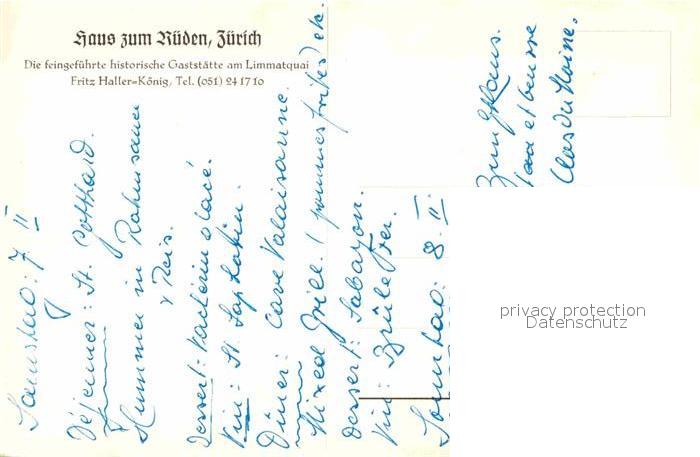 Haus zum Rüden, Zürich
Die feingeführte historische Gaststätte am Limmatquai
Fritz Haller=König, Tel. (051) 24 17 10
Samstag: 7. II
Déjeuner: St. Gotthard.
Hummer in Rahmsauce
+ Reis.
Dessert: Vacherin glacé.
Vin: St. Saphorin.
Dîner: Cave Valaisanne.
Mixed Grill. (pommes frites) etc.
Dessert: Sabayon.
Vin: Brûlefer.
Sonntag: 8. II.
Zunfthaus.
et beurre
Clos du Moine.
privacy protection
Datenschutz